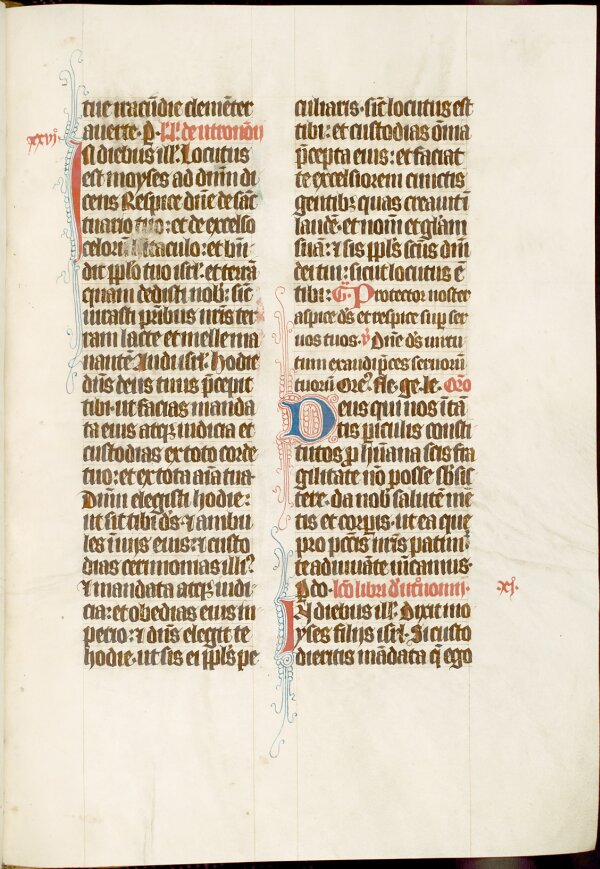 tue iracūdie clemēter
auerte. P. Ll'. deutronōii
xxvj.
In diebus ill'. Locutus
est moyses ad dn̄m di
cens Respice dn̄e de sāc
tuario tuo: et de excelso
celorū
dic pplo tuo isrl'. et terrā
quam dedisti nob: sic̄
iurasti pr̄ibus nr̄is ter
ram lacte et melle ma
nantē. Audi isrl'. Hodie
dn̄s deus tuus p̄cepit
tibi. ut facias manda
ta eius atq3 iudicia et
custodias ex toto corde
tuo: et ex tota aīa tua
Dnm̄ elegisti hodie:
ut sit tibi ds̄. ⁊ ambu
les ī uijs eius: ⁊ custo
dias cerimonias illi?
⁊ mandata atq3 iudi
cia: et obedias eius im
perio: ⁊ dn̄s elegit te
hodie. ut sis ei ppl's pe
culiaris. sic̄ locutus est
tibi: et custodias om̄ia
p̄cepta eius: et faciat
te excelsiorem cunctis
gentib3 quas creauit ī
laudē. et nom̄ et glām
suā: ⁊ sis ppl's scūs dn̄i
dei tui: sicut locutus ē
tibi: G. Protector noster
aspice ds̄ et respice sup ser
uos tuos. v̄ Dn̄e ds̄ uirtu
tum exaudi p̄ces seruorū
tuorū Ore?. fle. ge. le. Oro
Deus qui nos ī tā
tis piculis consti
tutos p hūana scis fra
gilitate nō posse sbsis
tere. da nob salutē mē
tis et corpis. ut ea que
pro pctīs nr̄is patim̄.
te adiuuāte uicamus.
P do. lco libri d'ut'uomij.
xj.
In diebus ill'. Dixit mo
yses filijs isrl'. Si custo
dieritis mādata q̄ ego